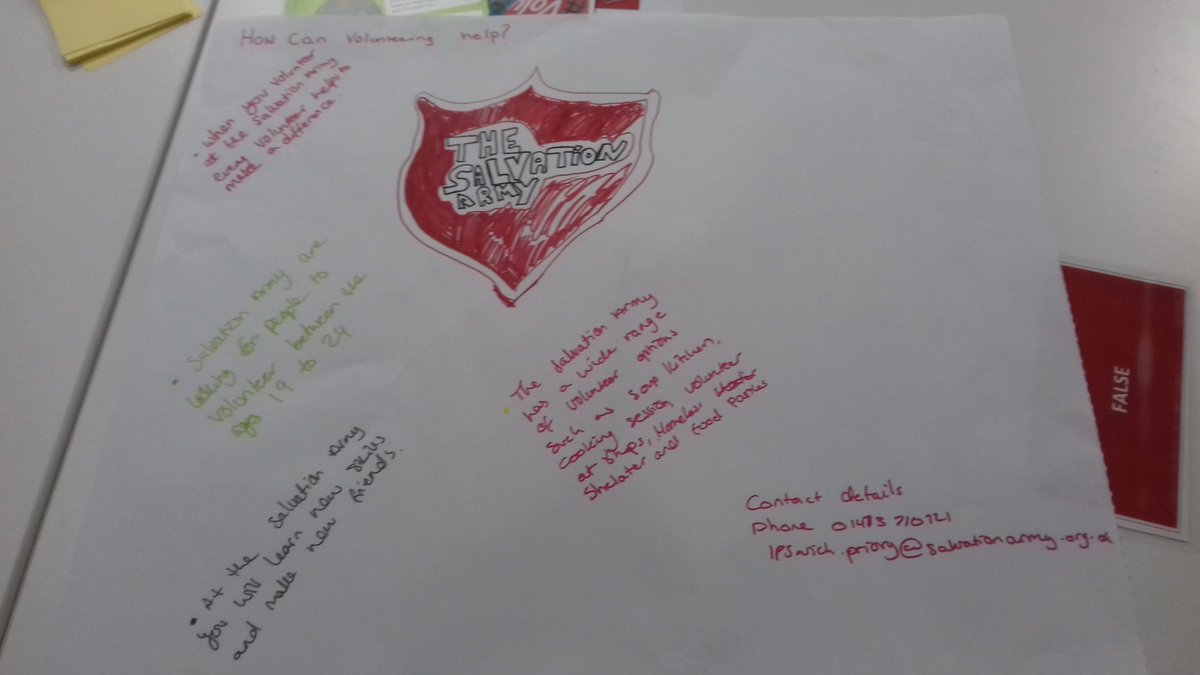 How Can Volunteering help?
• When you Volunteer
at the Salvation Army
every Volunteer helps to
make a difference.
THE
SALVATION
ARMY
• Salvation Army are
looking for people to
Volunteer between the
age 19 to 24
• The Salvation Army
has a wide range
of Volunteer options
such as soup Kitchen,
cooking session, volunteer
at shops, Homeless
Shelater and Food Paries
• At the Salvation Army
you will learn new skills
and make new friends.
Contact details
Phone 01473 710721
Ipswich.priory@salvationarmy.org.uk
FALSE